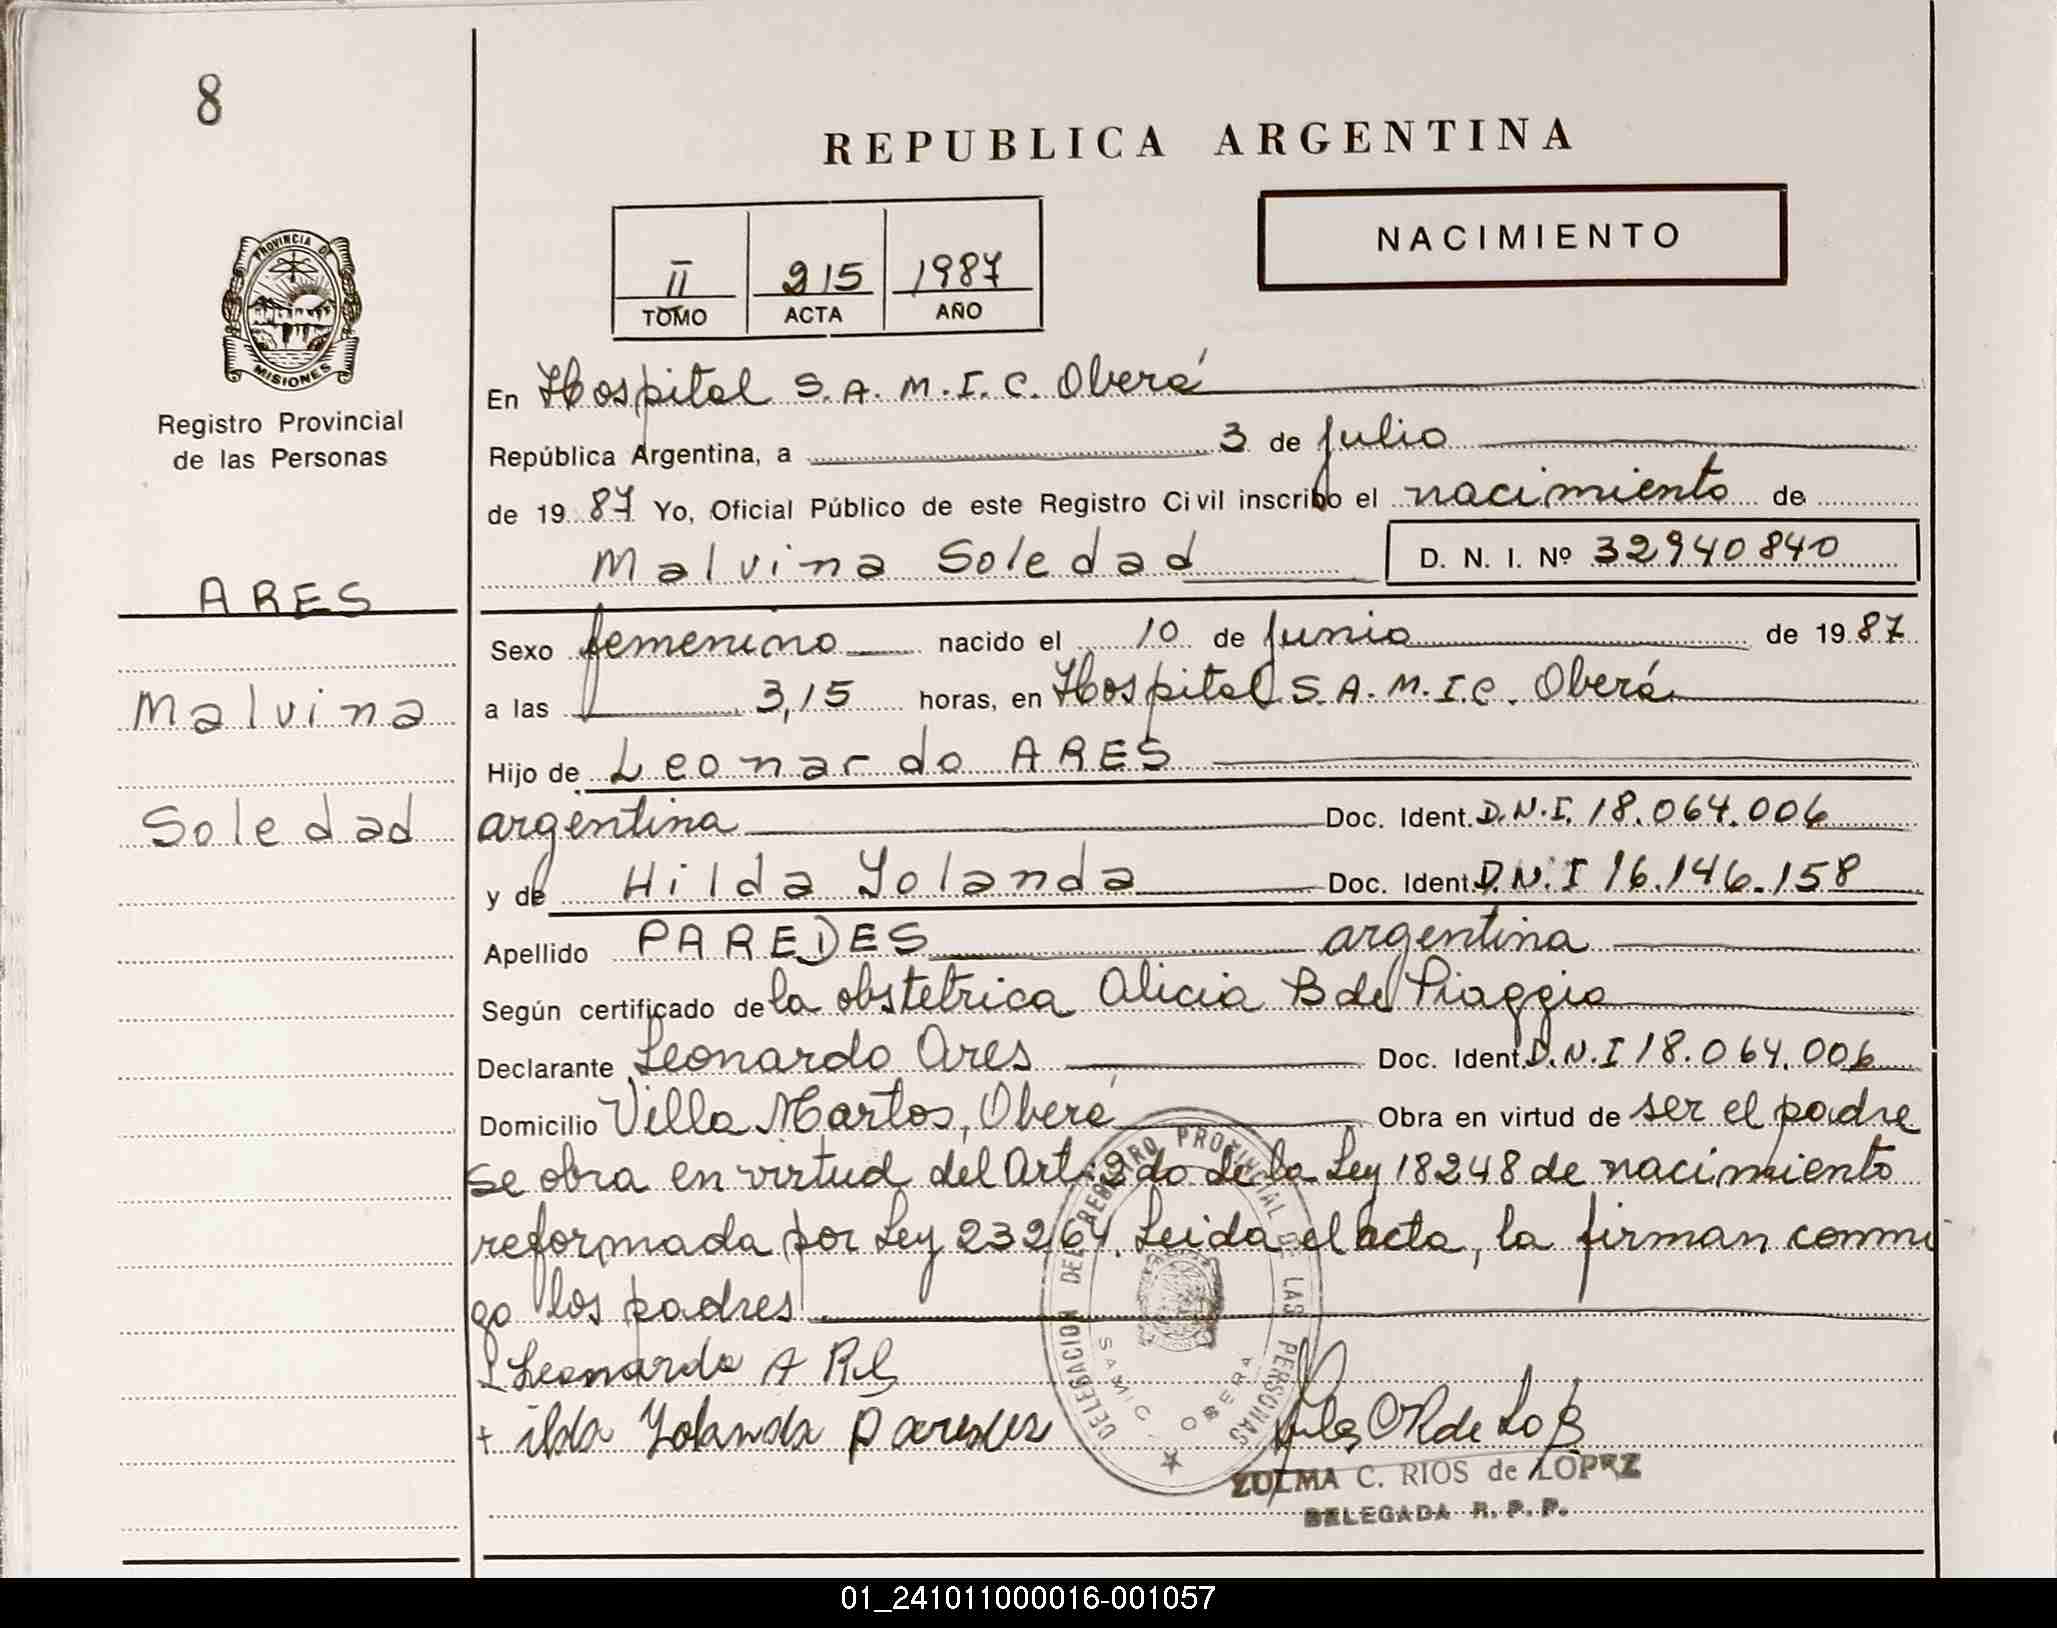 8
REPUBLICA ARGENTINA
NACIMIENTO
II 215 1987
TOMO ACTA AÑO
PROVINCIA DE
MISIONES
Registro Provincial
de las Personas
ARES
Malvina
Soledad
En Hospital S.A.M.I.C. Oberá
República Argentina, a 3 de Julio
de 1987 Yo, Oficial Público de este Registro Civil inscribo el nacimiento de
Malvina Soledad D. N. I. Nº 32940840
Sexo femenino nacido el 10 de Junio de 1987
a las 3,15 horas, en Hospital S.A.M.I.C. Oberá
Hijo de Leonardo ARES
argentina Doc. Ident. D.N.I. 18.064.006
y de Hilda Yolanda Doc. Ident. D.N.I 16.146.158
Apellido PAREDES argentina
Según certificado de la obstetrica Alicia B de Piaggio
Declarante Leonardo Ares Doc. Ident. D.N.I 18.064.006
Domicilio Villa Martos, Oberá Obra en virtud de ser el padre
se obra en virtud del Art. 2do de la Ley 18248 de nacimiento
reformada por Ley 23264. Leida el acta, la firman conmi
go los padres
Leonardo
ilda Yolanda Paredes
DELEGACION DEL REGISTRO PROVINCIAL DE LAS PERSONAS
SAMIC OBERA
ZULMA C. RIOS de LOPEZ
DELEGADA R. P. P.
01_241011000016-001057